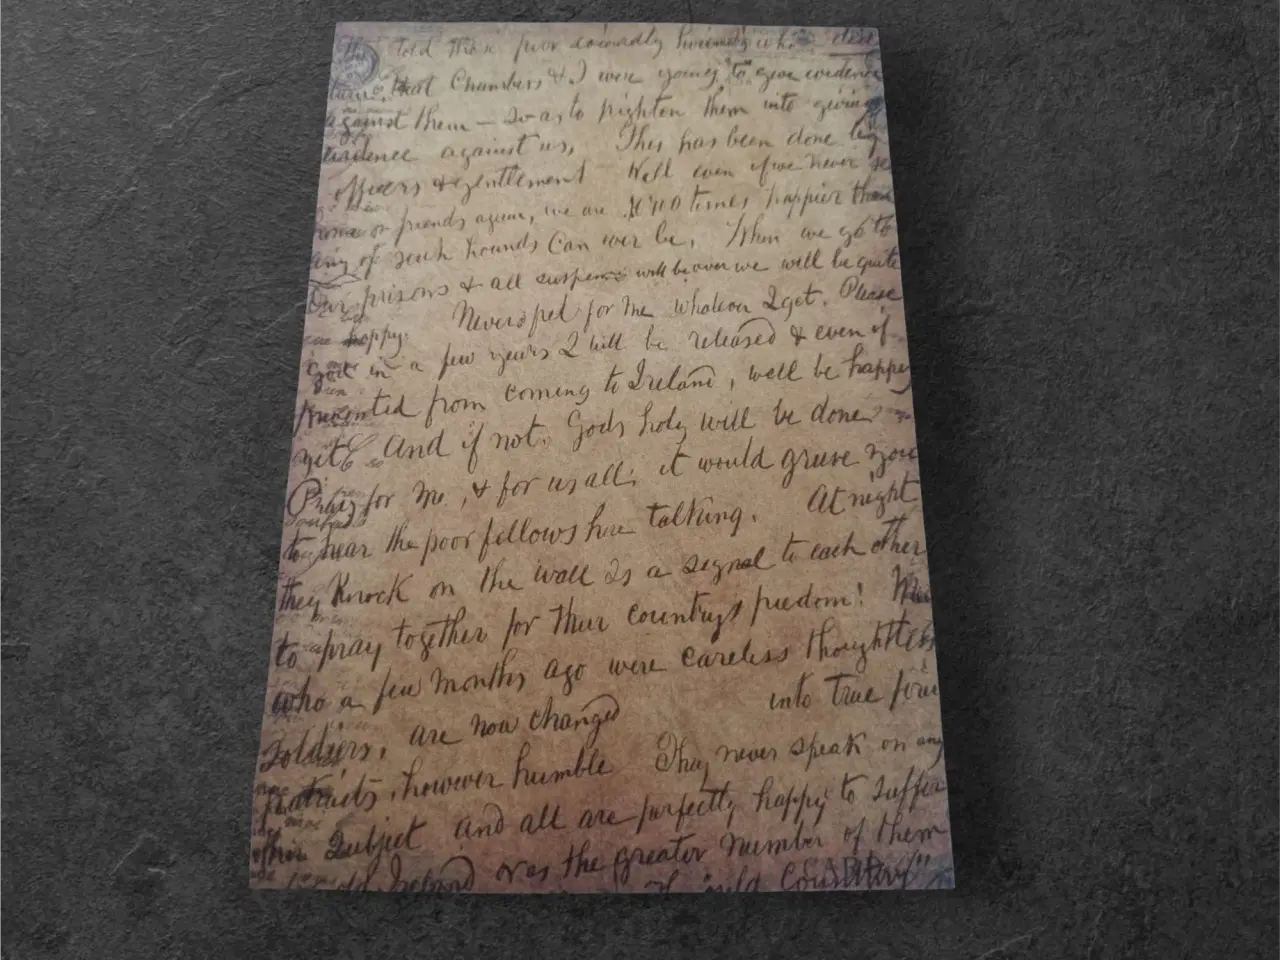 told these poor cowardly hounds who
that Chambers & I were going to give evidence
against them — so as to frighten them into giving
evidence against us, This has been done by
officers & gentlement Well even if we never se
or friends again, we are times happier than
any of such hounds can ever be. When we go to
Our prisons & all suspense will be over we will be quite
happy. Never fret for me whatever I get. Please
God in a few years I will be released & even if
prevented from coming to Ireland, well be happy
yet And if not, Gods holy will be done
Pray for me, & for us all, it would grieve you
to hear the poor fellows here talking. At night
they Knock on the wall as a signal to each other
to pray together for their countrys freedom! Men
who a few months ago were careless thoughtless
soldiers, are now changed into true
patriots, however humble They never speak on any
Subject and all are perfectly happy to suffer
old Ireland or as the greater number of them
country"